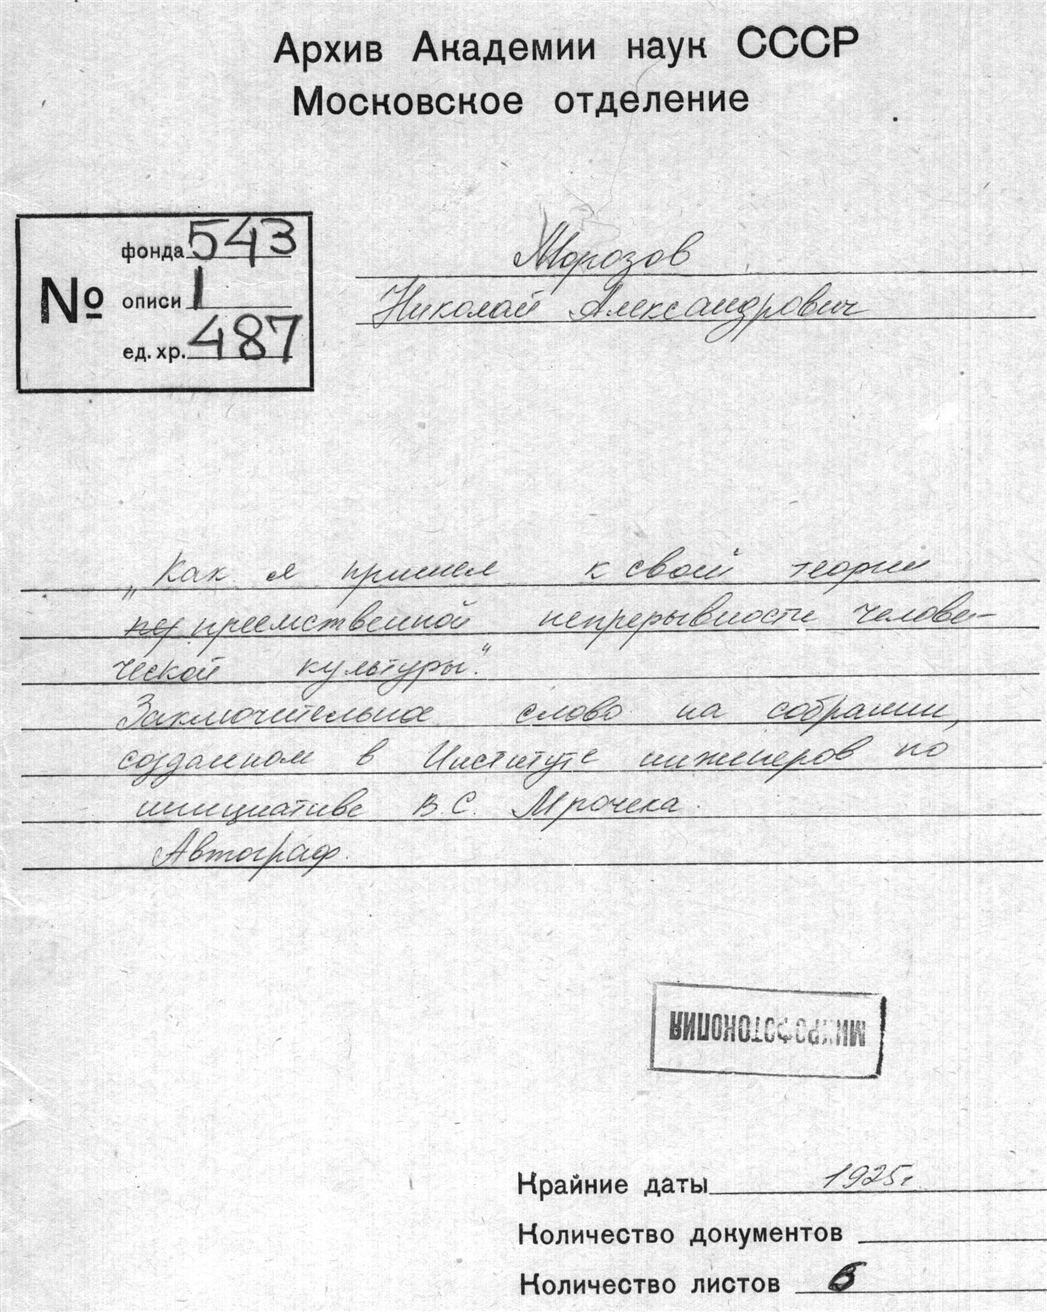 Архив Академии наук СССР
Московское отделение
№
фонда 543
описи 1
ед. хр. 487
Морозов
Николай Александрович
„Как я пришел к своей теории
преемственной непрерывности челове-
ческой культуры."
Заключительное слово на собрании,
созданном в Институте инженеров по
инициативе В.С. Мрочека.
Автограф.
МИКРОФОТОКОПИЯ
Крайние даты 1925г.
Количество документов
Количество листов 6